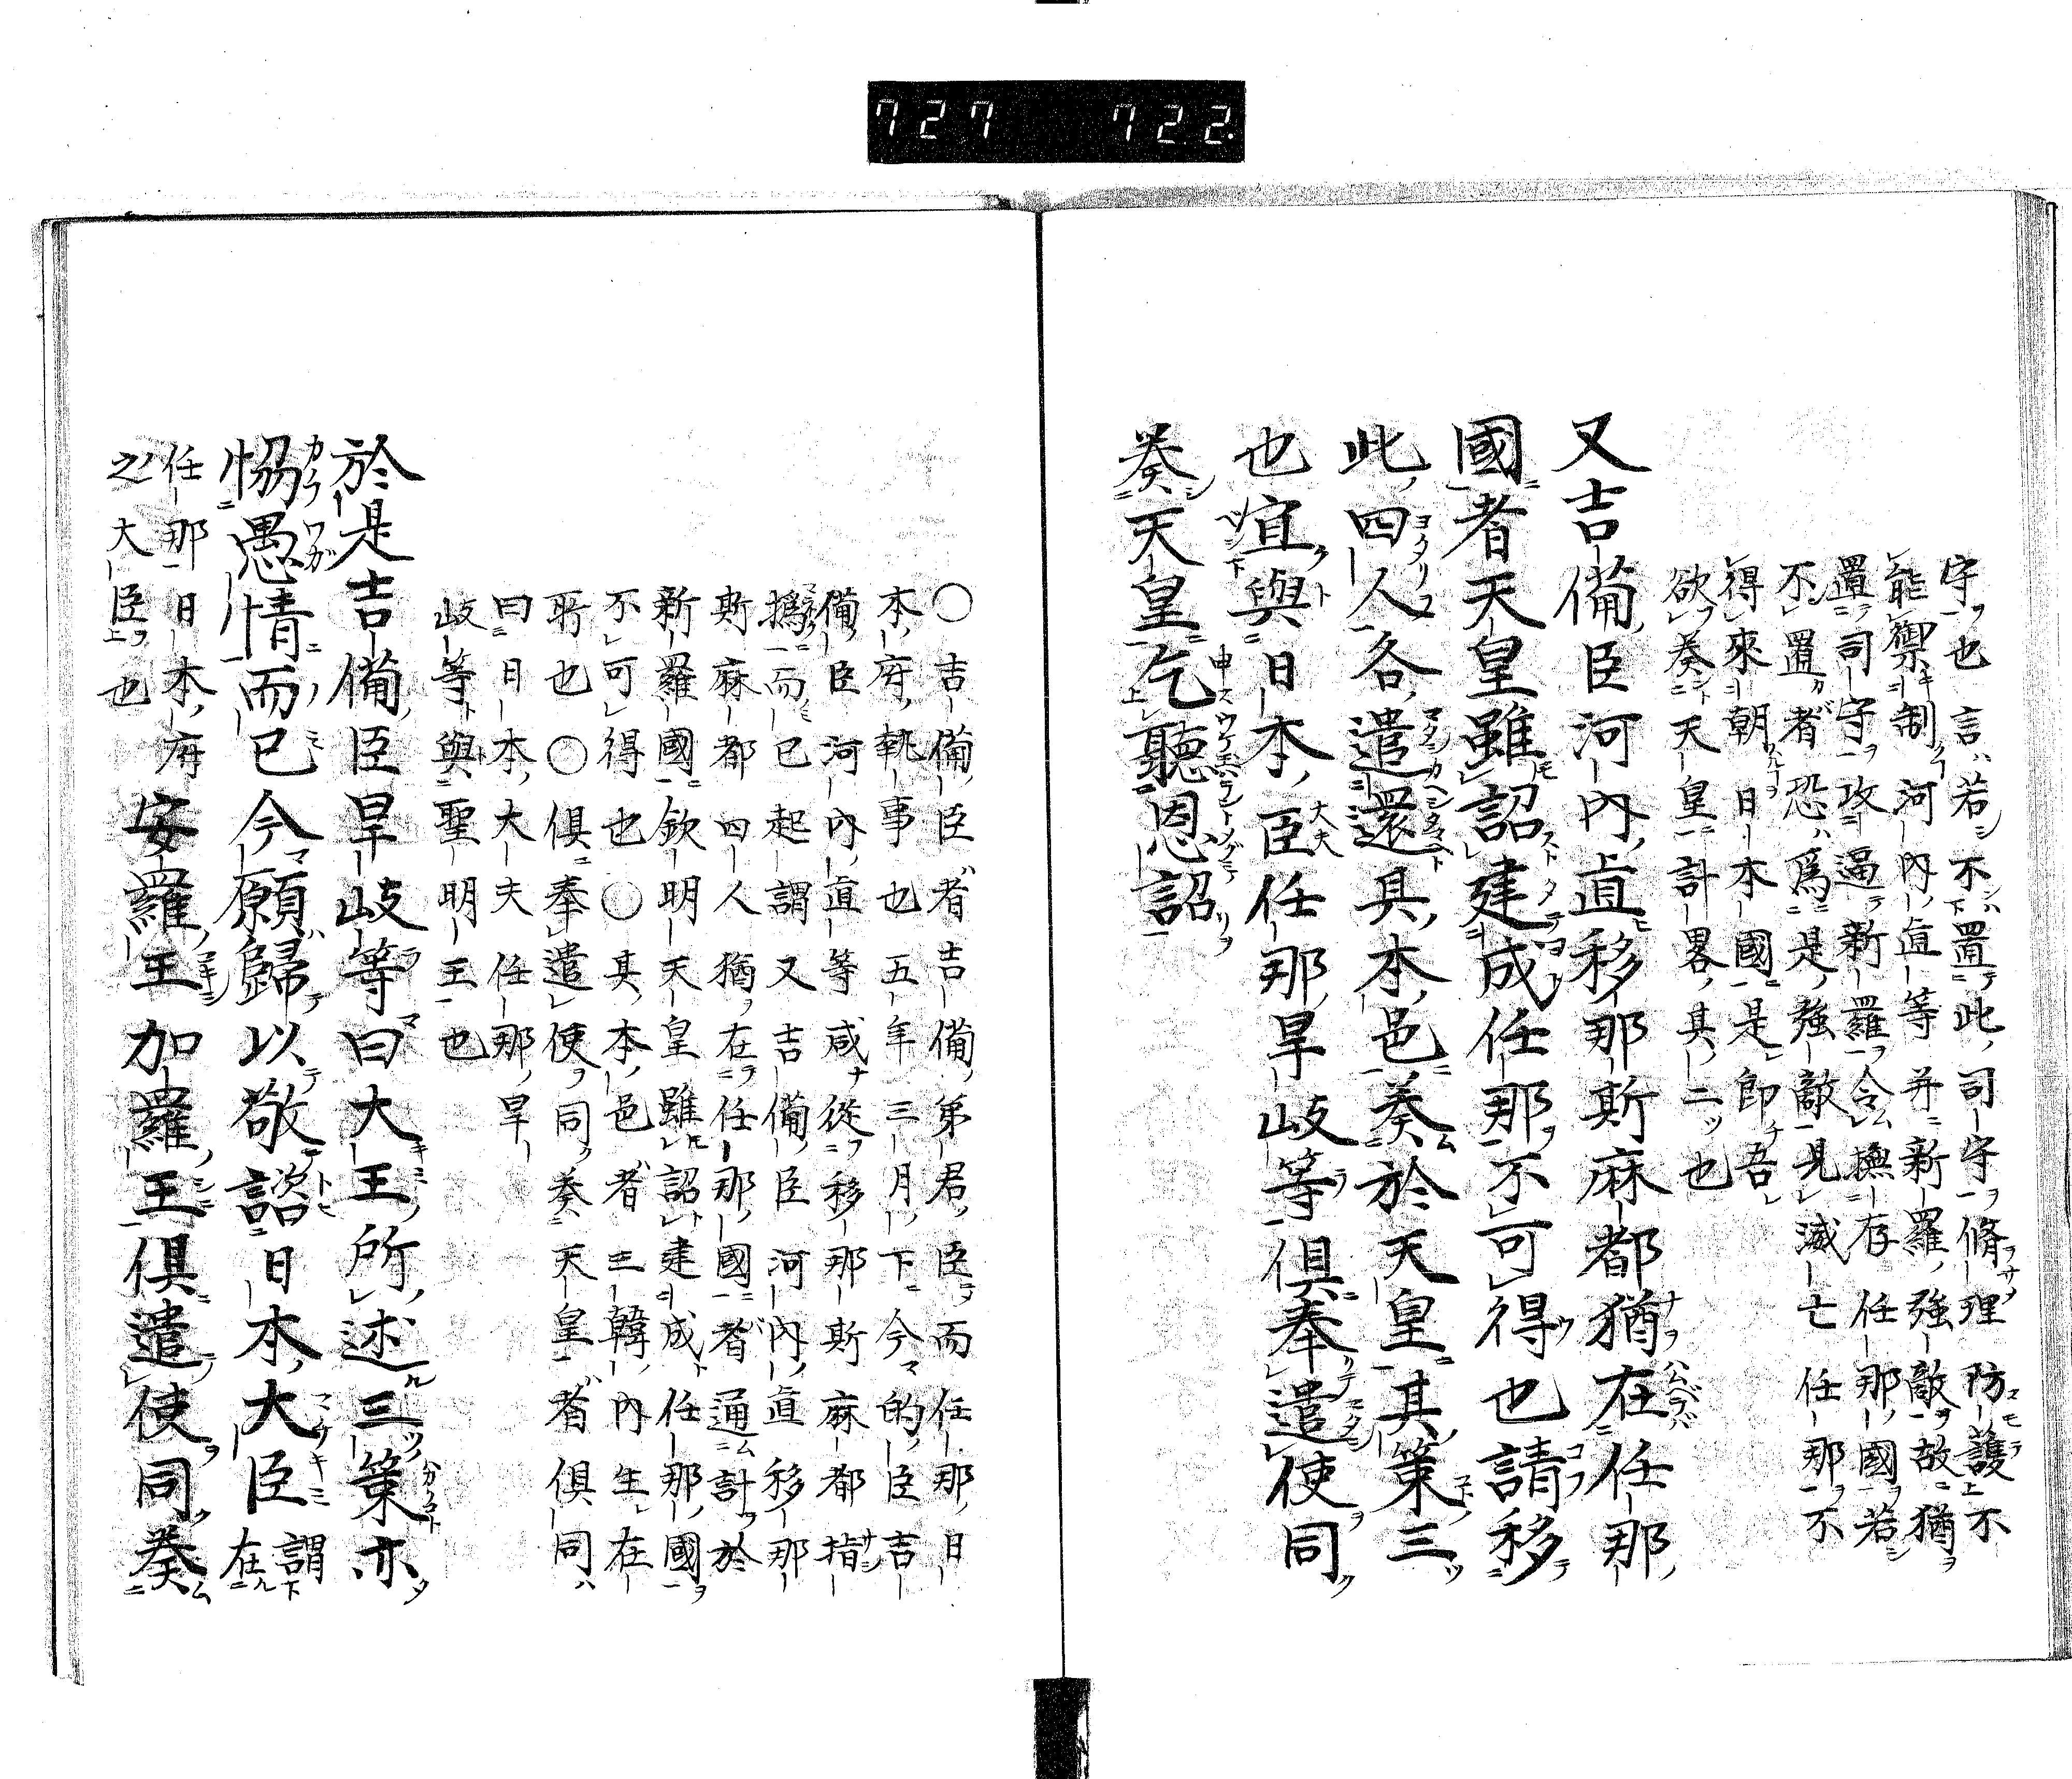 727 722
守也言若不置此司守脩理防護不
能禦制河内直等并新羅強敵故猶
置司守攻逼新羅令撫存任那國若
不置者恐爲是強敵見滅亡任那不
得來朝日本國是即吾
欲奏天皇計畧其二也
又吉備臣河内直移那斯麻都猶在任那
國者天皇雖詔建成任那不可得也請移
此四人各遣還具本邑奏於天皇其策三
也宜與日本臣任那旱岐等俱奉遣使同
奏天皇乞聽恩詔
○吉備臣者吉備第君臣而任那日
本府執事也五年三月下今的臣吉
備臣河内直等咸從移那斯麻都指
撝而已起謂又吉備臣河内直移那
斯麻都四人猶在任那國者通計於
新羅國欽明天皇雖詔建成任那國
不可得也○其本邑者三韓内生在
所也○俱奉遣使同奏天皇者俱同
曰日本大夫任那旱
岐等與聖明王也
於是吉備臣旱岐等曰大王所述三策亦
愶愚情而已今願歸以敬諮日本大臣謂在
任那日本府
之大臣也安羅王加羅王俱遣使同奏